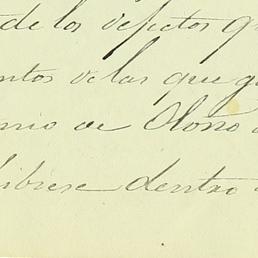 de los defectos q
ntos de las que g
nio de Otoño
librese dentro